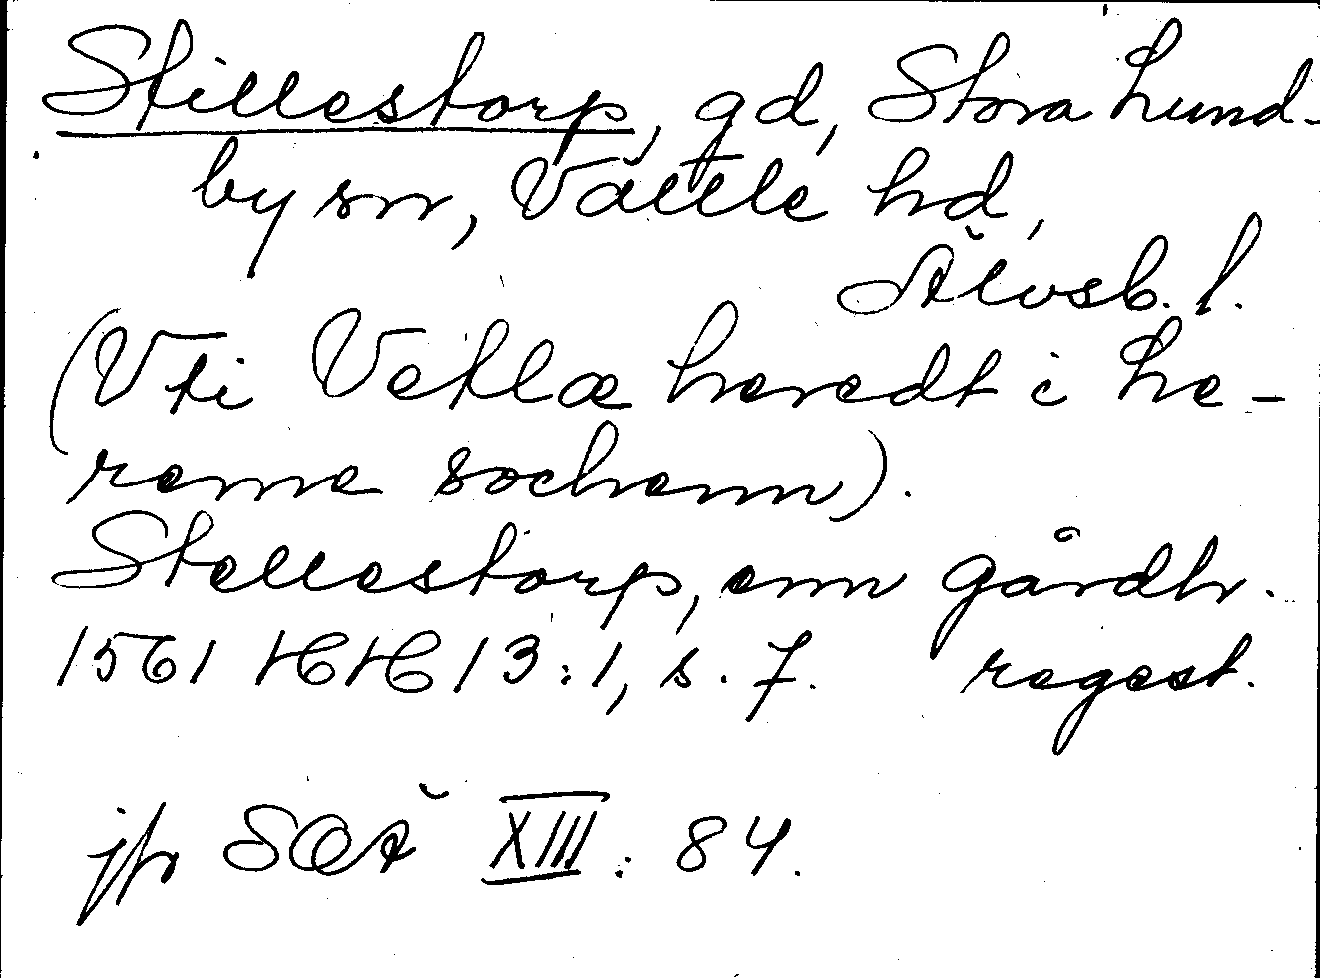 Stillestorp, gd, Stora Lund-
by sn, Vättle hd,
Älvsb. l.
(Vti Vetlæ heredt i Le-
reme sochenn).
Stellestorp, enn gårdh.
1561 HH 13:1, s. 7. regest.
jfr SOÄ XIII: 84.